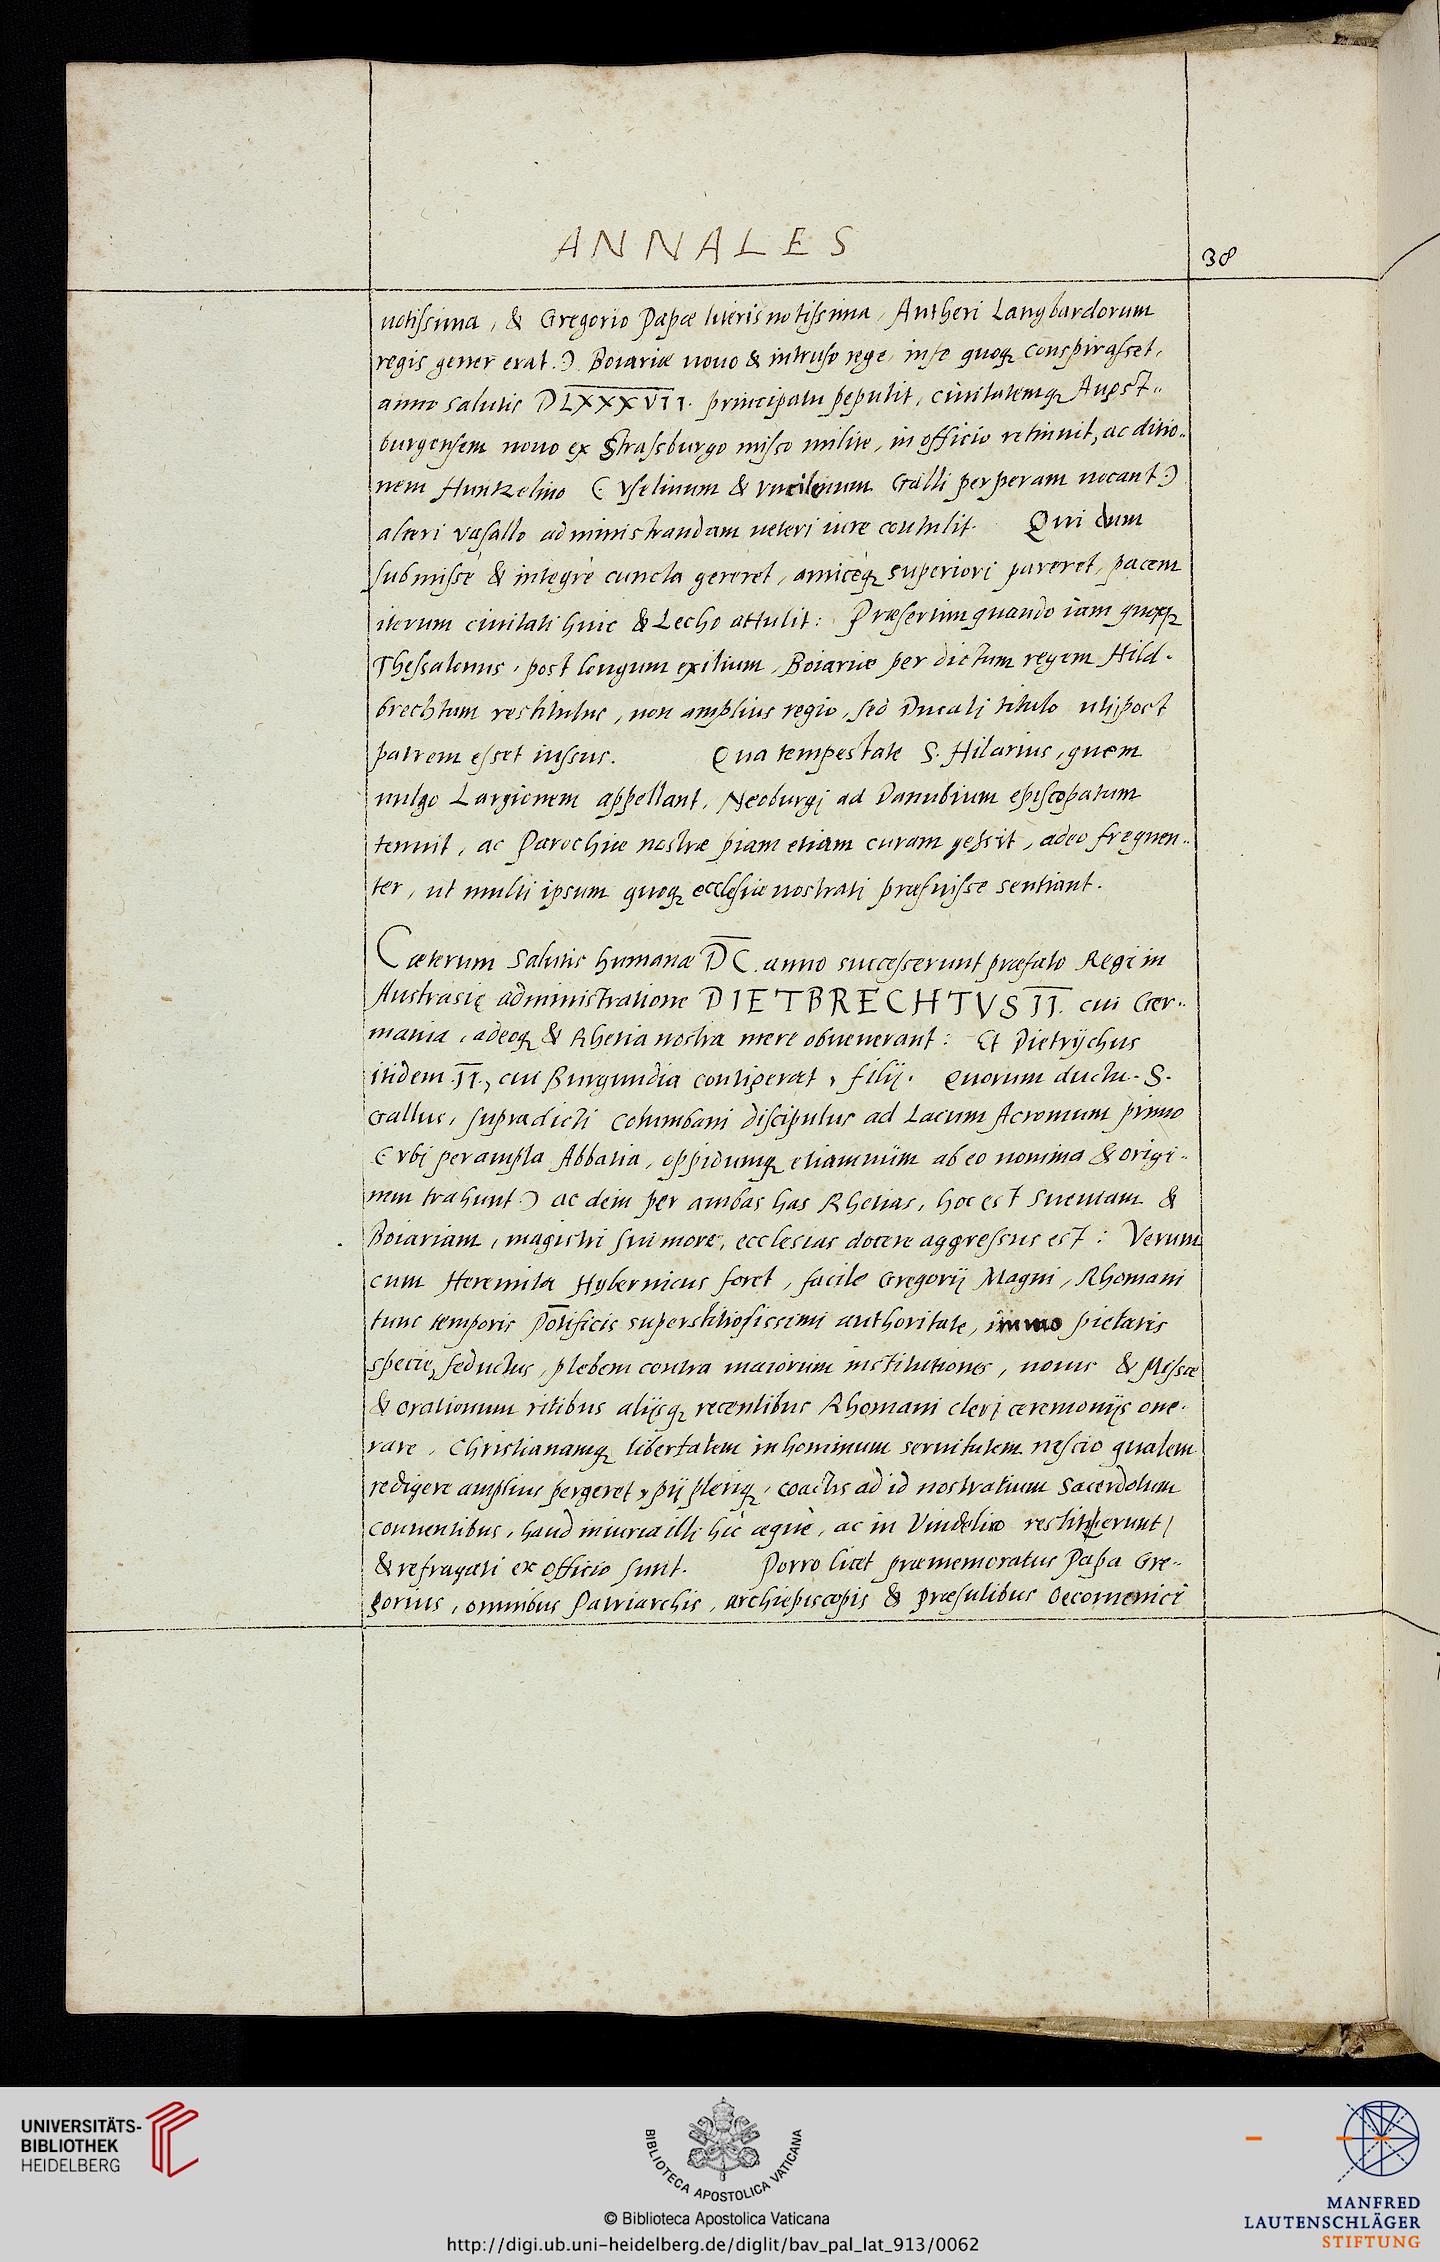 ANNALES
38
notissima, & Gregorio Papæ literis notissima, Antheri Langbardorum
regis gener erat.) Boiariæ nouo & intruso rege, in se quoq; conspirasset,
anno salutis DLXXXVII. principatu pepulit, ciuitatemq; Augst-
burgensem nouo ex Strassburgo misso milite, in officio retinuit, ac ditio-
nem Huntzelino (Vselinum & Vncilenum Galli perperam uocant)
alteri vasallo administrandam ueteri iure contulit. Qui dum
submissè & integrè cuncta gereret, amicèq; superiori pareret, pacem
iterum ciuitati huic & Lecho attulit: Præsertim quando iam quoq;
Thessalonus, post longum exilium, Boiariæ per dictum regem Hild-
brechtum restitutus, non amplius regio, sed Ducali titulo uti post
patrem esset iussus. Qua tempestate S. Hilarius, quem
uulgo Largionem appellant, Neoburgi ad Danubium episcopatum
tenuit, ac Parochiæ nostræ piam etiam curam gessit, adeo frequen-
ter, ut multi ipsum quoq; ecclesiæ nostrati præfuisse sentiant.
Cæterum salutis humanæ DC. anno successerunt præfato Regi in
Austrasię administratione DIETBRECHTVS II. cui Ger-
mania, adeoq; & Rhetia nostra mere obuenerant: Et Dietrychus
itidem II., cui Burgundia contigerat, filij. Quorum ductu S.
Gallus, supradicti Columbani discipulus ad Lacum Acromum primo
(Vbi perampla Abbatia, oppidumq; etiamnum ab eo nomina & origi-
nem trahunt) ac dein per ambas has Rhetias, hoc est Sueuiam &
Boiariam, magistri sui more, ecclesias docere aggressus est: Verum
cum Heremita Hybernicus foret, facile Gregorij Magni, Rhomani
tunc temporis Pōtificis superstitiosissimi authoritate, immo pietatis
specie, seductus, plebem contra maiorum institutiones, nouis & Missæ
& orationum ritibus alijsq; recentibus Rhomani cleri ceremonijs one-
rare, Christianamq; libertatem in hominum seruitutem nescio qualem
redigere amplius pergeret, pij pleriq;, coactis ad id nostratium Sacerdotum
conuentibus, haud iniuria illi hic æquè, ac in Vindelico restiterunt,
& refragati ex officio sunt. Porro licet præmemoratus Papa Gre-
gorius, omnibus Patriarchis, archiepiscopis & præsulibus Oecomenici
UNIVERSITÄTS-
BIBLIOTHEK
HEIDELBERG
BIBLIOTECA APOSTOLICA VATICANA
© Biblioteca Apostolica Vaticana
http://digi.ub.uni-heidelberg.de/diglit/bav_pal_lat_913/0062
MANFRED
LAUTENSCHLÄGER
STIFTUNG